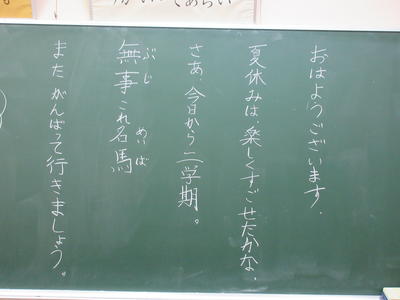 おはようございます．
夏休みは、楽しくすごせたかな．
さあ、今日から二学期。
無事これ名馬
ぶじ
めいば
また がんばって行きましょう。